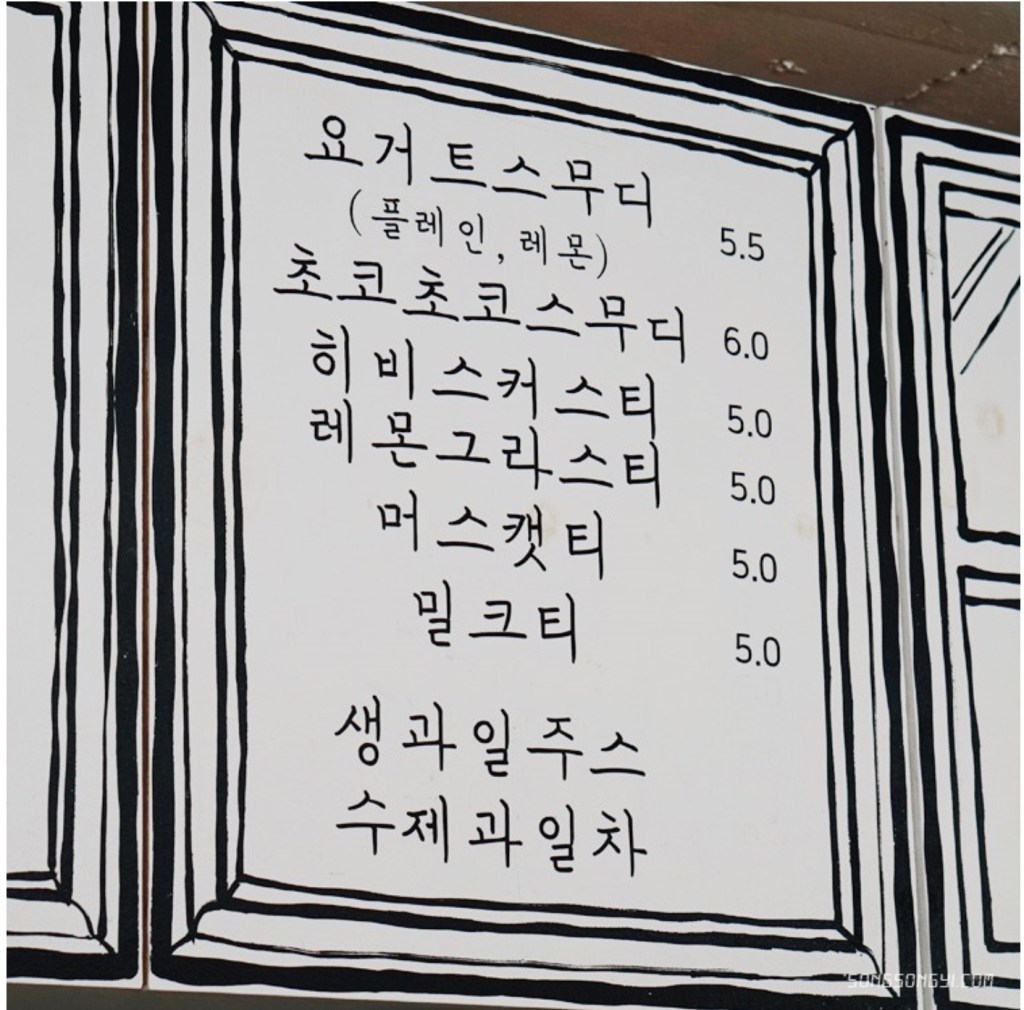 요거트스무디
(플레인, 레몬) 5.5
초코초코스무디 6.0
히비스커스티 5.0
레몬그라스티 5.0
머스캣티 5.0
밀크티 5.0
생과일주스
수제과일차
SONGSONGYI.COM